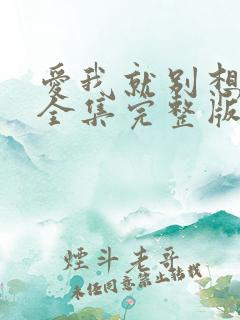 爱我就别想
全集完整版
煙斗老哥
未经同意禁止转载